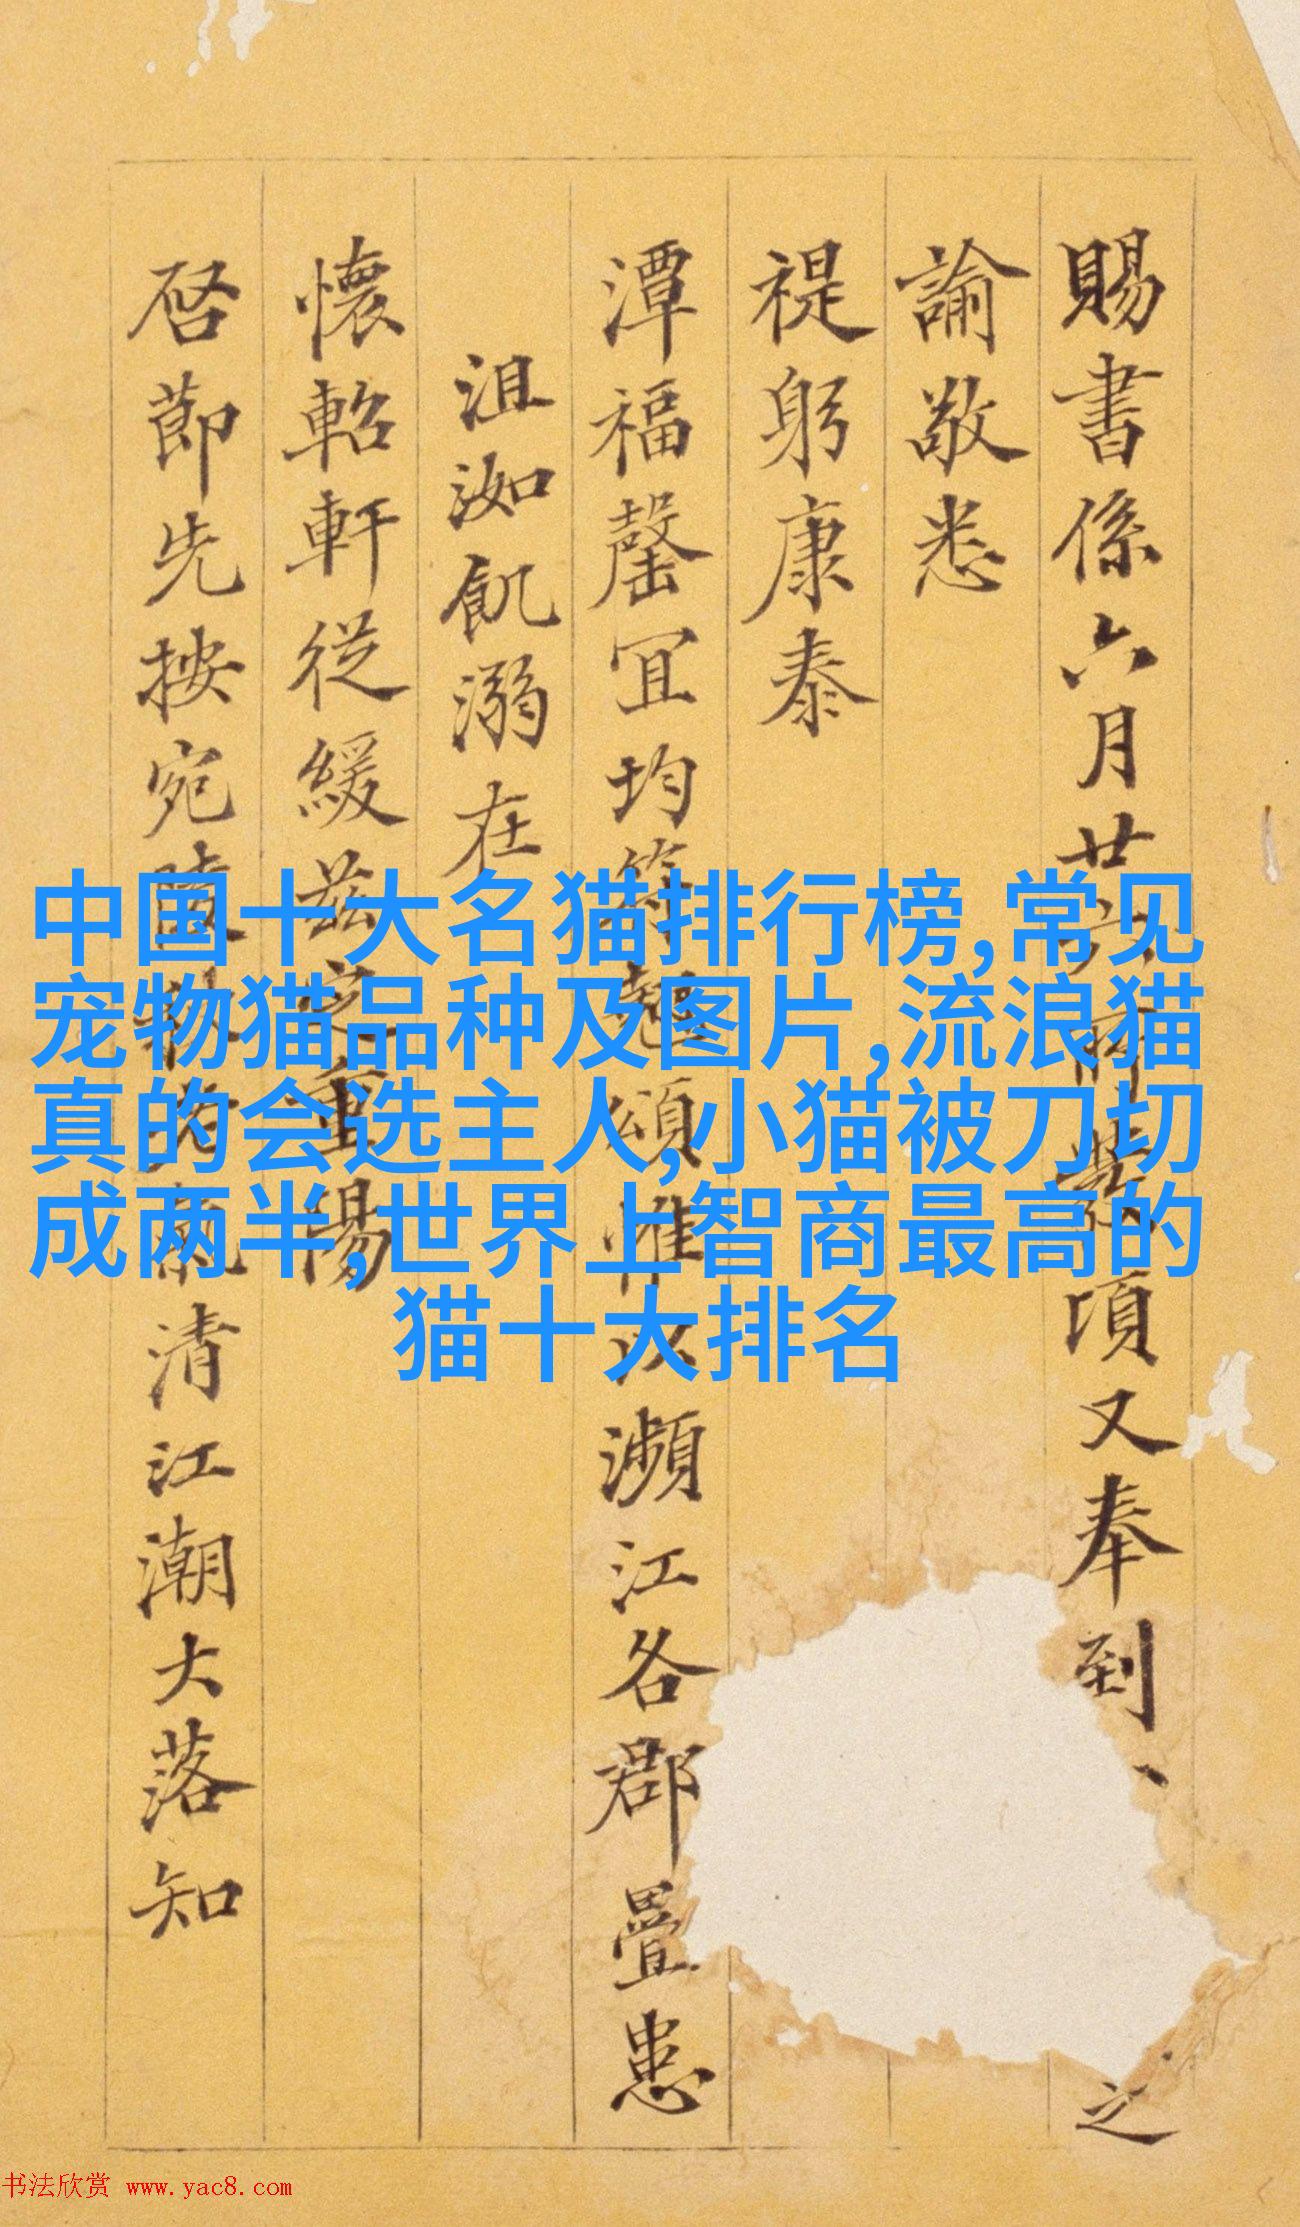 賜書係六月廿六
項又奉到
之
諭敬悉
禔躬康泰
潭福罄宜均符
頌惟以瀕江各郡疊患
沮洳飢溺在
懷軺軒從緩茲
重陽
啓節先按宛陵
清江潮大落知
中国十大名猫排行榜,常见
宠物猫品种及图片,流浪猫
真的会选主人,小猫被刀切
成两半,世界上智商最高的
猫十大排名
书法欣赏 www.yac8.com